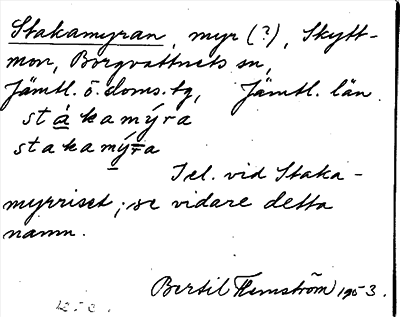 Stakamyran, myr (?), Skytt-
mon, Borgvattnets sn,
Jämtl. ö. doms. tg, Jämtl. län.
stákamýra
stakamýra
Tel. vid Staka-
myrriset; se vidare detta
namn.
Bertil Flemström 1953.